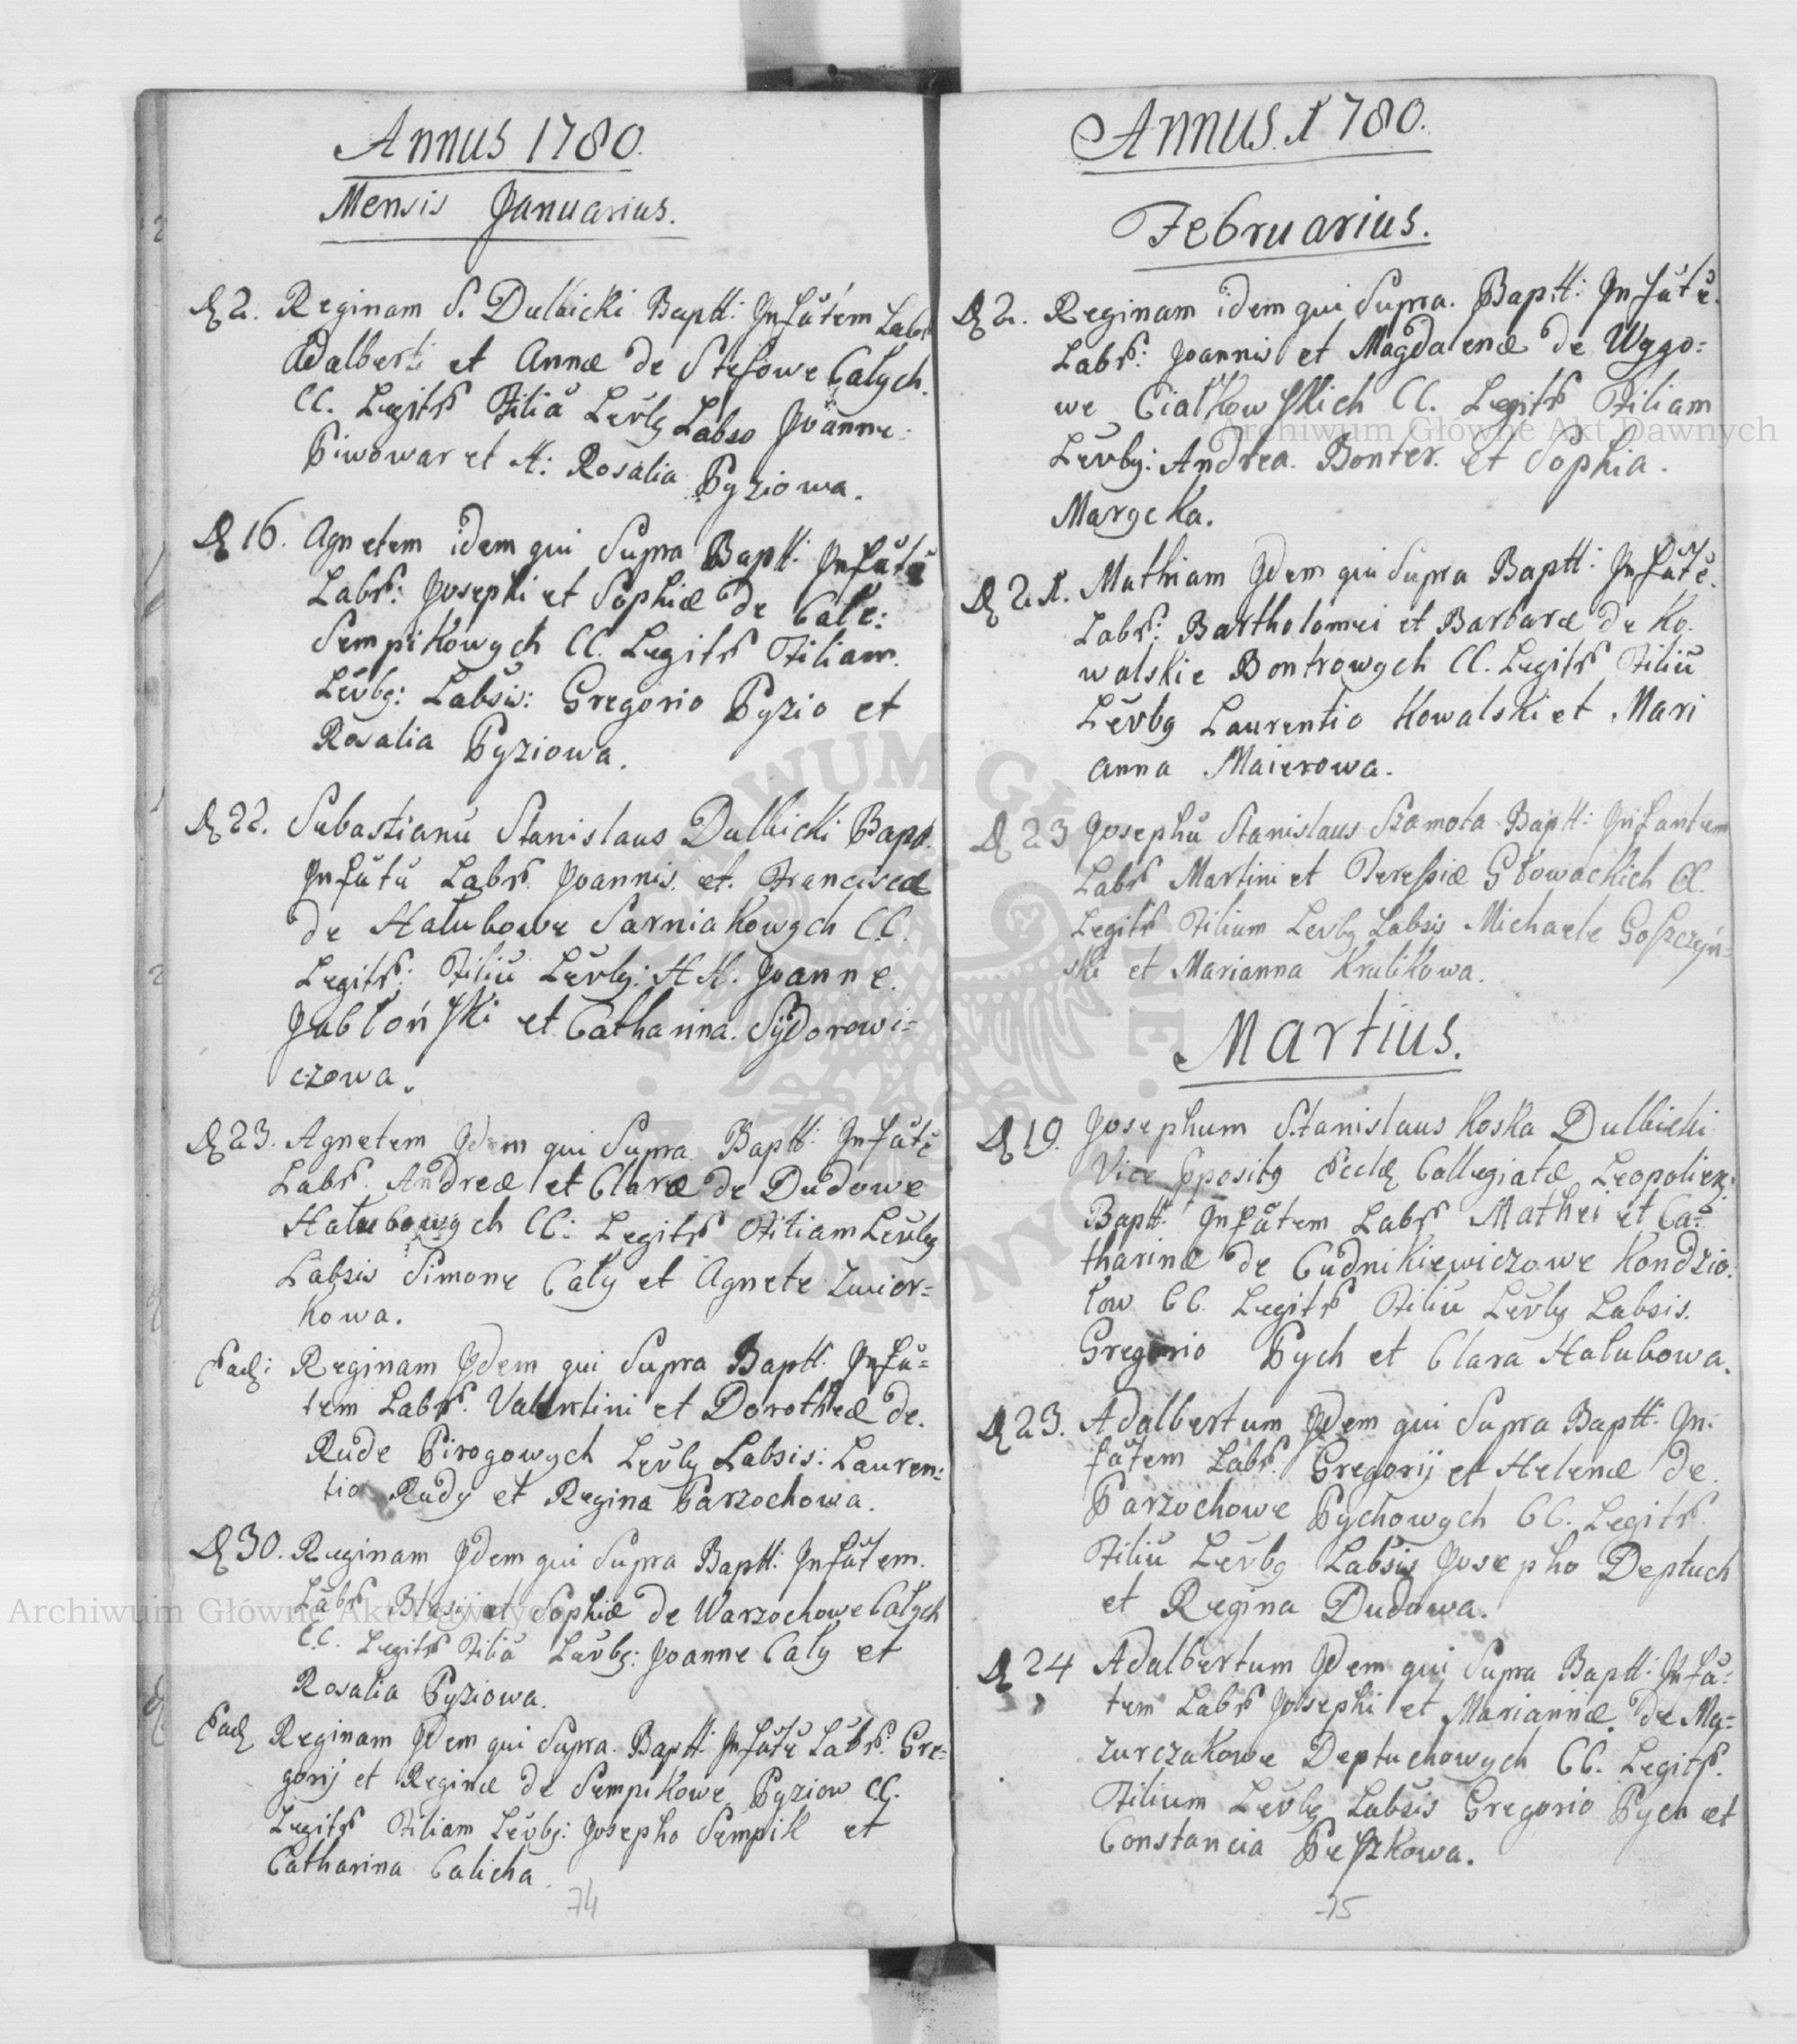 Annus 1780.
Mensis Januarius.
D 2. Reginam S. Dulbicki Baptt: Infātem Labr
Adalberti et Annæ de Stesowe Całych.
CC. Legitr Filiā Levbg Labso Joanne
Piwowar et H: Rosalia Pyziowa.
D 16. Agnetem idem qui Supra Baptt: Infātē
Labr: Josephi et Sophiæ de Cale:
Sempikowych CC. Legitr Filiam.
Levbg: Labsis: Gregorio Pyzio et
Rosalia Pyziowa.
D 22. Sebastianū Stanislaus Dulbicki Bapt.
Infātū Labr. Joannis et Franciscæ
de Hałubowe Sarniakowych CC.
Legitr: Filiū Levbg: HH. Joanne.
Jabłoński et Catharina Sydorowi=
czowa.
D 23. Agnetem Idem qui Supra Baptt: Infātē
Labr. Andreæ et Claræ de Dudowe
Hałubowych CC: Legitr Filiam Levbg
Labsis Simone Cały et Agnete Zwior=
kowa.
Ead: Reginam Idem qui Supra Baptt: Infā=
tem Labr. Valentini et Dorotheæ de.
Rude Pirogowych Levbg Labsis: Lauren:
tio Rudy et Regina Parzochowa.
D 30. Reginam Idem qui Supra Baptt: Infātem.
Labr Blasij et Sophiæ de Warzochowe Całych
CC. Legitr Filiā Levbg: Joanne Cały et
Rosalia Pyziowa.
Ead Reginam Idem qui Supra Baptt: Infātē Labr. Gre=
gorij et Reginæ de Sempikowe Pyziow CC.
Legitr Filiam Levbg: Josepho Sempik et
Catharina Calicha.
74
Annus 1780.
Februarius.
D 2. Reginam idem qui Supra. Baptt: Infātē.
Labr: Joannis et Magdalenæ de Wygo=
we Ciałkowskich CC. Legitr Filiam
Levbg: Andrea Bonter. et Sophia.
Marycka.
D 21. Mathiam Idem qui Supra Baptt: Infātē.
Labr: Bartholomei et Barbaræ de Ko.
walskie Bontrowych CC. Legitr Filiū
Levbg Laurentio Kowalski et Mari
anna Maierowa.
D 23 Josephū Stanislaus Szamota Baptt: Infantem
Labr Martini et Teressiæ Głowackich CC.
Legitr Filium Levbg Labsis Michaele Goszczyń=
ski et Marianna Krulikowa.
Martius.
D 19. Josephum Stanislaus Koska Dulbicki
Vice Ppositg Eccłæ Collegiatæ Leopolien:
Baptt: Infātem Labr Mathei et Ca=
tharinæ de Cudnikiewiczowe Kondzio:
łow CC. Legitr Filiū Levbg Labsis.
Gregorio Pych et Clara Hałubowa.
D 23. Adalbertum Idem qui Supra Baptt: In=
fātem Labr. Gregorij et Helenæ de.
Parzochowe Pychowych CC. Legitr.
Filiū Levbg Labsis Josepho Deptuch
et Regina Dudowa.
D 24 Adalbertum Idem qui Supra Baptt: Infā=
tem Labr Josephi et Mariannæ de Ma=
zurczakowe Deptuchowych CC. Legitr.
Filium Levbg Labsis Gregorio Pych et
Constancia Peszkowa.
75
Archiwum Główne Akt Dawnych
Archiwum Główne Akt Dawnych